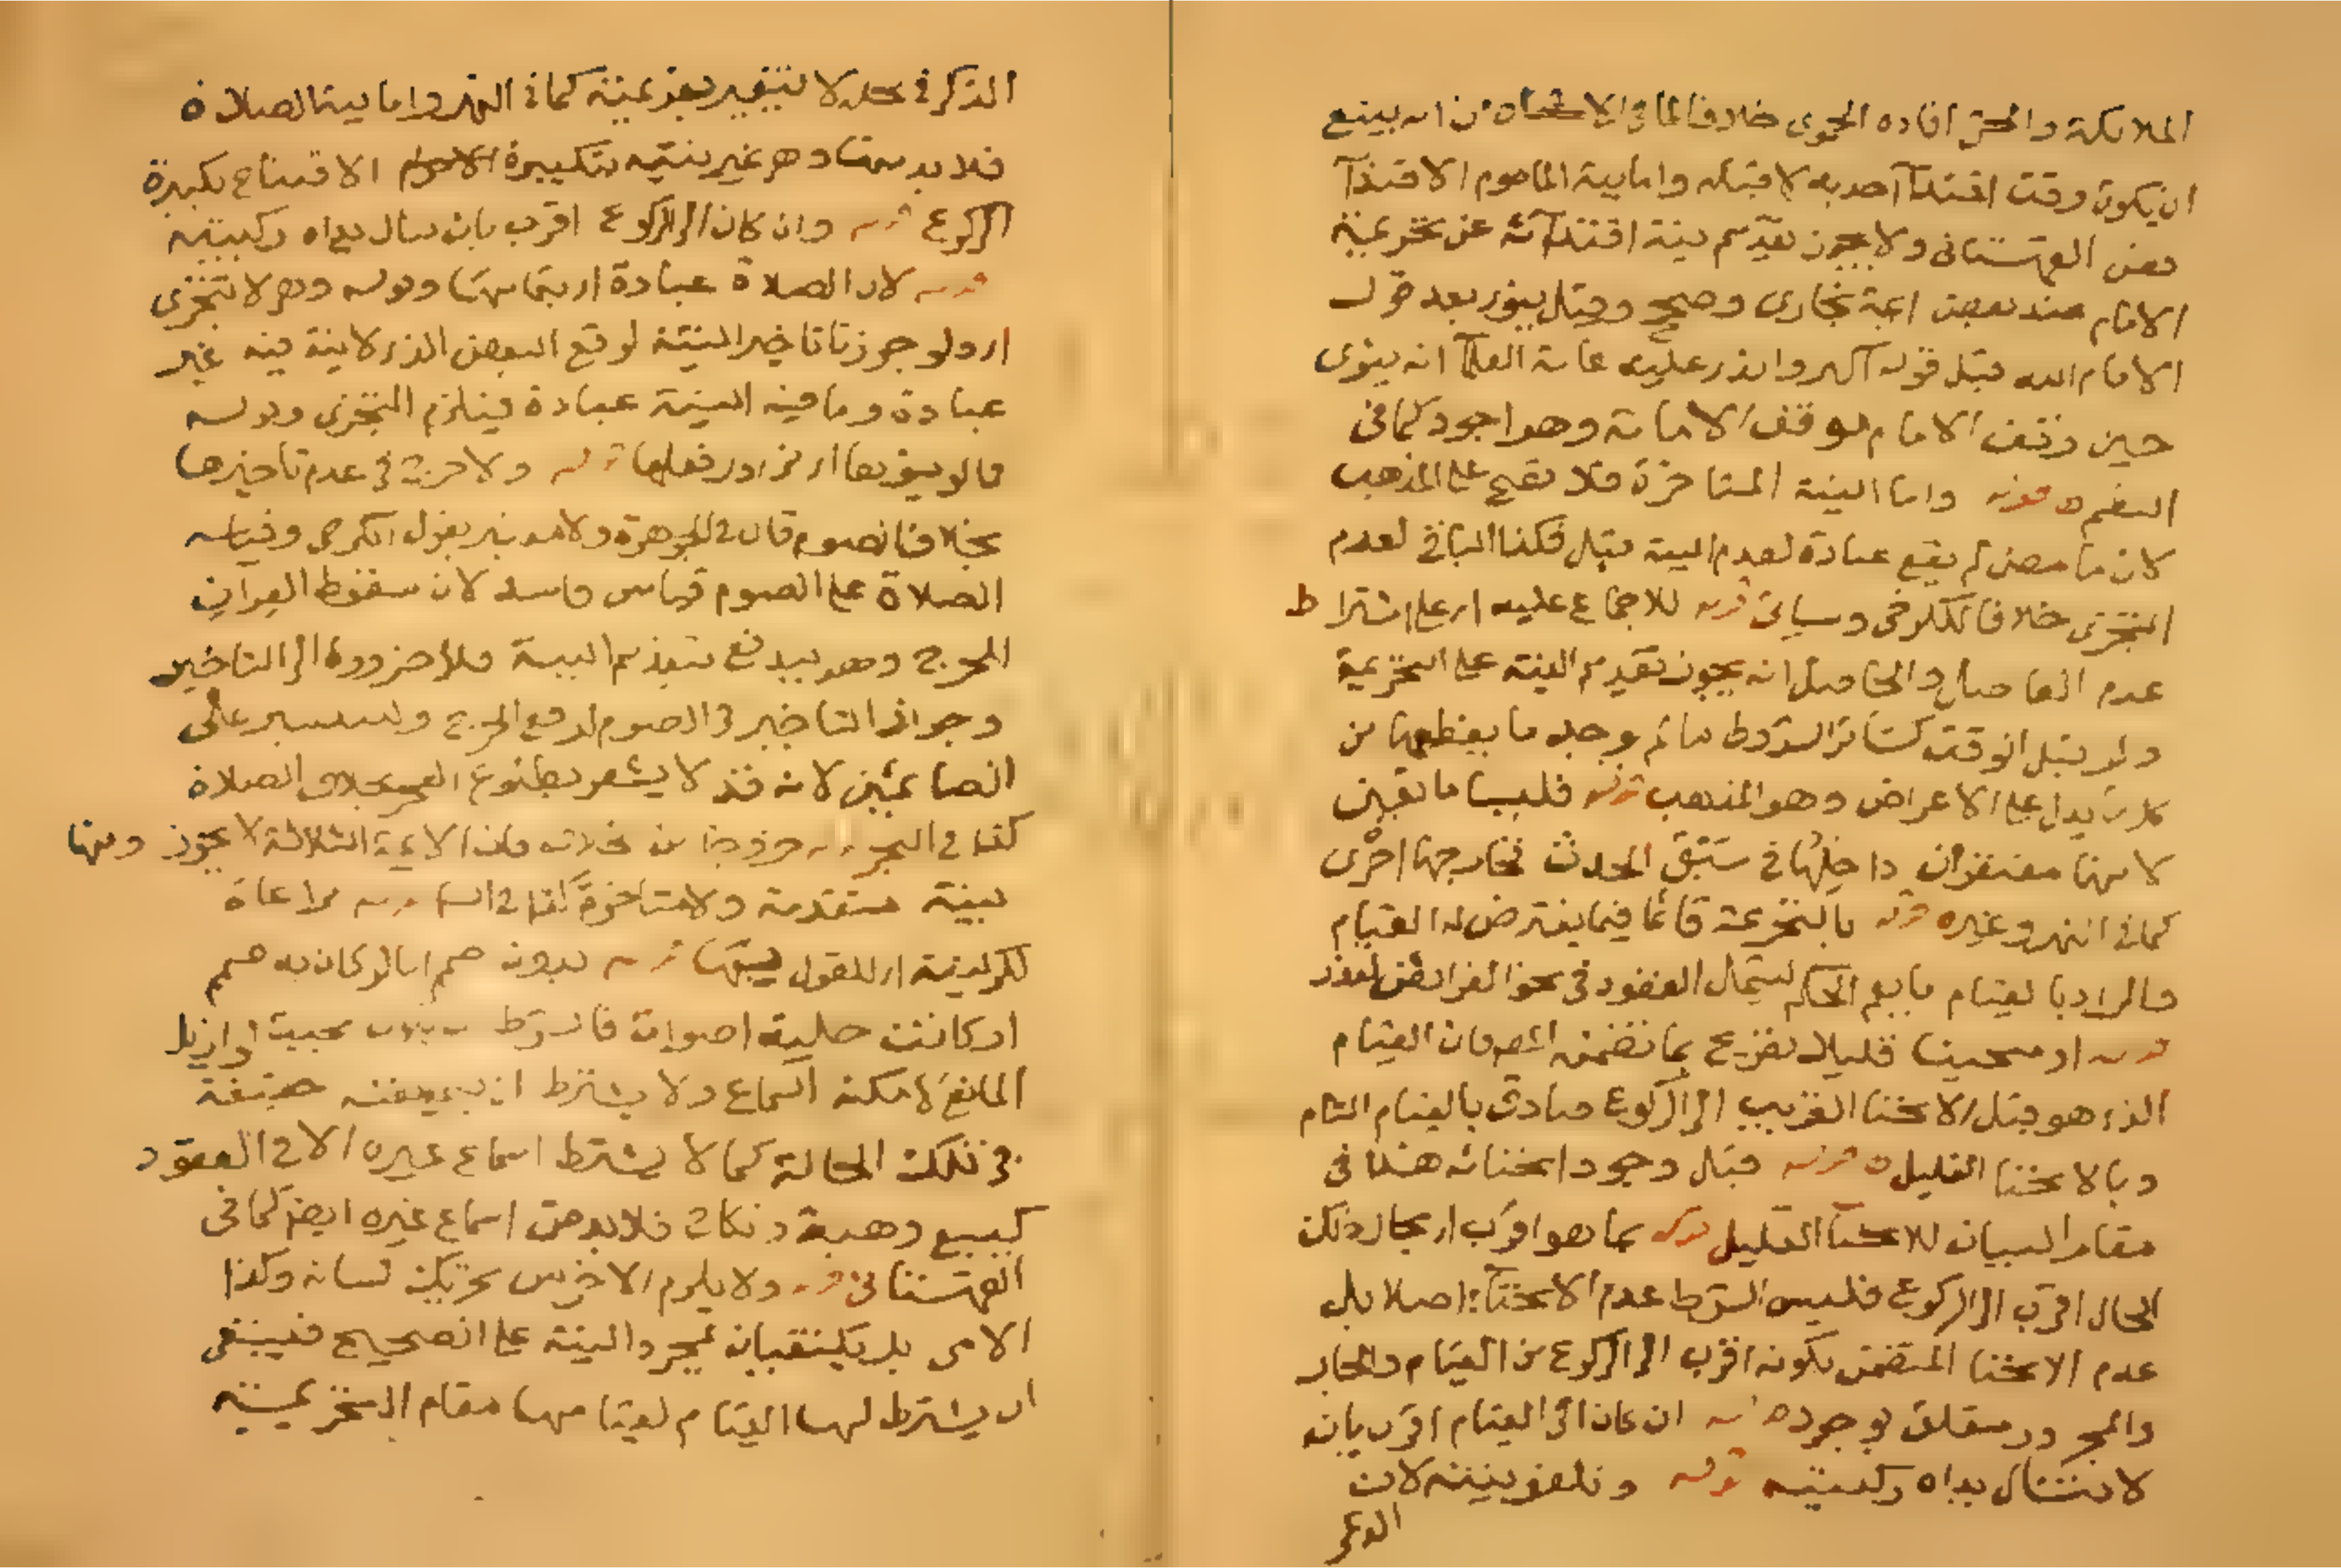 الملائكة والجن افاده الحموى خلافا لما فى الاشباه من انه ينبغى
ان يكون وقت اقتدآ احد به لا قبله واما نية الماموم الاقتدآ
فعن القهستانى ولا يجوز تقديم نية اقتدآئه عن تحريمة
الامام عند بعض ائمة بخارى وصحح وقيل ينوى بعد قول
الامام الله قبل قوله اكبر والذى عليه عامة العلمآ انه ينوى
حين وقف الامام موقف الامامة وهو اجود كما فى
قوله واما النية المتاخرة فلا تصح على المذهب
لان ما مضى لم يقع عبادة لعدم النية قبل فكذا الباقى لعدم
التجزى خلافا للكرخى وسياتى قوله للاجماع عليه اى على اشتراط
عدم الفاصل والحاصل انه يجوز تقديم النية على التحريمة
ولو قبل الوقت كسائر الشروط ما لم يوجد ما يقطعها من
يدل على الاعراض وهو المذهب قوله
داخلها فى سبق الحدث خارجها اخرى
كما فى النهر وغيره قوله بالتحريمة قائما فيما يفترض له القيام
فالمراد بالقيام ما يعم الحكمى ليشمل القعود فى نحو الفرائض لعذر
قوله او منحنيا قليلا تفريع بما تضمنه المص فان القيام
الذى هو قبل الانحنا القريب الى الركوع صادق بالقيام التام
وبالانحنا القليل قوله قبل وجود انحنائه هذا فى
مقام البيان للانحنآ القليل قوله بما هو اقرب اى بحال ذلك
الحال اقرب الى الركوع فليس الشرط عدم الانحنآ اصلا بل
عدم الانحنا المتضمن بكونه اقرب الى الركوع من القيام والجار
والمجرور متعلق بوجود قوله ان كان الى القيام اقرب بان
لا تنال يداه ركبتيه قوله وتلغو نيته لان
الذكر فى محله لا يتغير بعزيمته كما فى النهر واما نية الصلاة
فلا بد منها وهو غير نيته بتكبيرة الافتتاح تكبيرة
الركوع قوله وان كان الى الركوع اقرب بان تنال يداه ركبتيه
قوله لان الصلاة عبادة اى بتمامها وقوله وهو لا تتجزى
اى ولو جوزنا تاخير النية لوقع البعض الذى لا نية فيه غير
عبادة وما فيه النية عبادة فيلزم التجزى وقوله
ما لو قوله ولا حرج فى عدم تاخيرها
بخلاف الصوم قال فى الجوهرة ولا معتبر بقول الكرخى وقياس
الصلاة على الصوم قياس فاسد لان سقوط القران
للحرج وهو يندفع بتقديم النية فلا ضرورة الى التاخير
وجواز التاخير فى الصوم لدفع الحرج والتيسير على
الصائمين لانه قد لا يشعر بطلوع الفجر بخلاف الصلاة
كذا فى البحر قوله خروجا من خلاف فان الائمة الثلاثة لا يجوزونها
بنية متقدمة ولا متاخرة كذا فى قوله مراعاة
لكونية اى للقول قوله بدون صمم اما لو كان به صمم
او كانت جلبة اصوات فالشرط بحيث لو ازيل
المانع لامكنه السماع ولا يشترط ان يسمع نفسه حقيقة
فى تلك الحالة كما لا يشترط اسماع غيره الا فى العقود
كبيع وهبة ونكاح فلا بد من اسماع غيره ايضا كما فى
القهستانى قوله ولا يلزم الاخرس تحريك لسانه وكذا
الامى بل يكتفيان بمجرد النية على الصحيح فينبغى
ان يشترط لهما القيام لقيامها مقام التحريمة